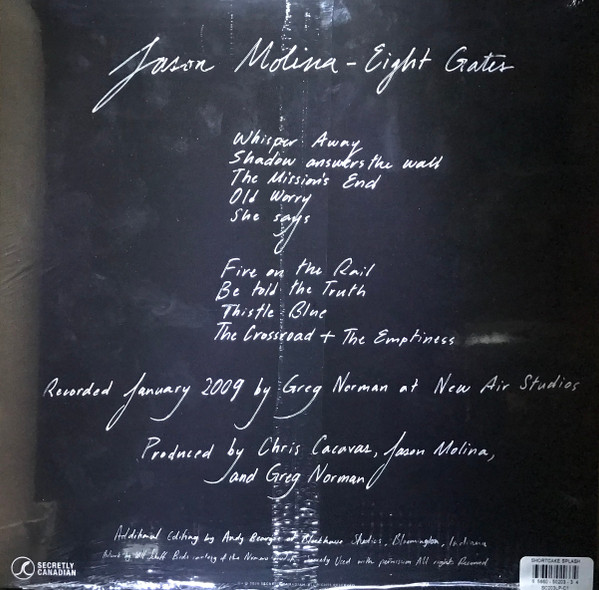 Jason Molina - Eight Gates
Whisper Away
Shadow answers the wall
The Mission's End
Old Worry
She says
Fire on the Rail
Be told the Truth
Thistle Blue
The Crossroad + The Emptiness
Recorded January 2009 by Greg Norman at New Air Studios
Produced by Chris Cacavas, Jason Molina,
and Greg Norman
Additional Editing by Andy at Studios, Bloomington, Indiana
Used with permission All rights Reserved
SECRETLY
CANADIAN
SHORTCAKE SPLASH